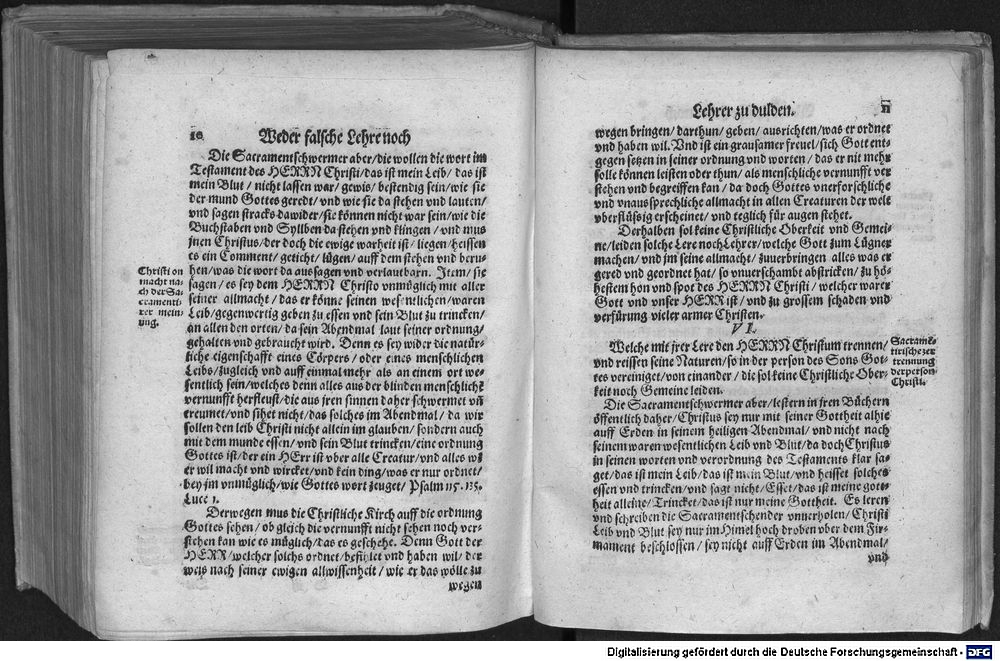 10 Weder falsche Lehre noch
Die Sacramentschwermer aber/die wollen die wort im
Testament des HERRN Christi/das ist mein Leib/ das ist
mein Blut / nicht lassen war/ gewis/ bestendig sein/wie sie
der mund Gottes geredt/und wie sie da stehen und lauten/
und sagen stracks dawider/sie können nicht war sein/wie die
Buchstaben und Syllben da stehen und klingen / und mus
jnen Christus/der doch die ewige warheit ist/ liegen/heissen
es ein Comment/ geticht/ lügen/ auff dem stehen und beru-
hen/was die wort da aussagen und verlautbarn. Item/ sie
sagen / es sey dem HERRN Christo unmöglich mit aller
seiner allmacht / das er könne seinen wesentlichen/waren
Leib/gegenwertig geben zu essen und sein Blut zu trincken/
an allen den orten/ da sein Abendmal laut seiner ordnung/
gehalten und gebraucht wird. Denn es sey wider die natür-
liche eigenschafft eines Cörpers / oder eines menschlichen
Leibs/zugleich und auff einmal mehr als an einem ort we-
sentlich sein/welches denn alles aus der blinden menschlichē
vernunfft herfleust/die aus jren sinnen daher schwermet uñ
ereumet/und sihet nicht/das solches im Abendmal / da wir
sollen den leib Christi nicht allein im glauben/ sondern auch
mit dem munde essen/ und sein Blut trincken/eine ordnung
Gottes ist/der ein HErr ist uber alle Creatur/und alles wz
er wil macht und wircket/und kein ding/was er nur ordnet/
bey jm unmüglich/wie Gottes wort zeuget/ Psalm 115. 135.
Luce 1.
Derwegen mus die Christliche Kirch auff die ordnung
Gottes sehen/ ob gleich die vernunfft nicht sehen noch ver-
stehen kan wie es müglich/das es geschehe. Denn Gott der
HERR/welcher solchs ordnet/befihlet und haben wil/ der
weis nach seiner ewigen allwissenheit / wie er das wölle zu
wegen
Christi on
macht na-
ch der Sa-
cramenti-
rer mein-
ung.
Lehrer zu dulden. 11
wegen bringen/ darthun/ geben/ ausrichten/was er ordnet
und haben wil. Und ist ein grausamer freuel/sich Gott ent-
gegen setzen in seiner ordnung und worten / das er nit mehr
solle können leisten oder thun/ als menschliche vernunfft ver
stehen und begreiffen kan / da doch Gottes unerforschliche
und unaussprechliche allmacht in allen Creaturen der welt
uberflüssig erscheinet/ und teglich für augen stehet.
Derhalben sol keine Christliche Oberkeit und Gemei-
ne/leiden solche Lere noch Lehrer/welche Gott zum Lügner
machen/ und jm seine allmacht/ zuuerbringen alles was er
gered und geordnet hat/ so unuerschambt abstricken/ zu hö-
hestem hon und spot des HERRN Christi / welcher warer
Gott und unser HERR ist / und zu grossem schaden und
verfürung vieler armer Christen.
VI.
Welche mit jrer Lere den HERRN Christum trennen/
und reissen seine Naturen/so in der person des Sons Got-
tes vereiniget/von einander / die sol keine Christliche Ober-
keit noch Gemeine leiden.
Die Sacramentschwermer aber/lestern in jren Büchern
öffentlich daher/ Christus sey nur mit seiner Gottheit alhie
auff Erden in seinem heiligen Abendmal/ und nicht nach
seinem waren wesentlichen Leib und Blut/da doch Christus
in seinen worten und verordnung des Testaments klar sa-
get/das ist mein Leib/das ist mein Blut/und heisset solches
essen und trincken/ und sagt nicht/Esset/das ist meine gott-
heit alleine/Trincket/das ist nur meine Gottheit. Es leren
und schreiben die Sacramentschender unuerholen/ Christi
Leib und Blut sey nur im Himel hoch droben uber dem Fir-
mament beschlossen / sey nicht auff Erden im Abendmal/
und
Sacramē-
tirische zer
trennung
der person
Christi.
Digitalisierung gefördert durch die Deutsche Forschungsgemeinschaft - DFG